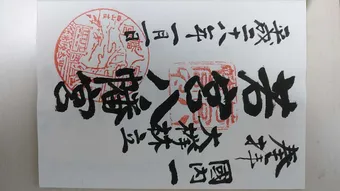 奉拝
國内一
大樟林立
若宮八幡宮
平成二十八年一月一日